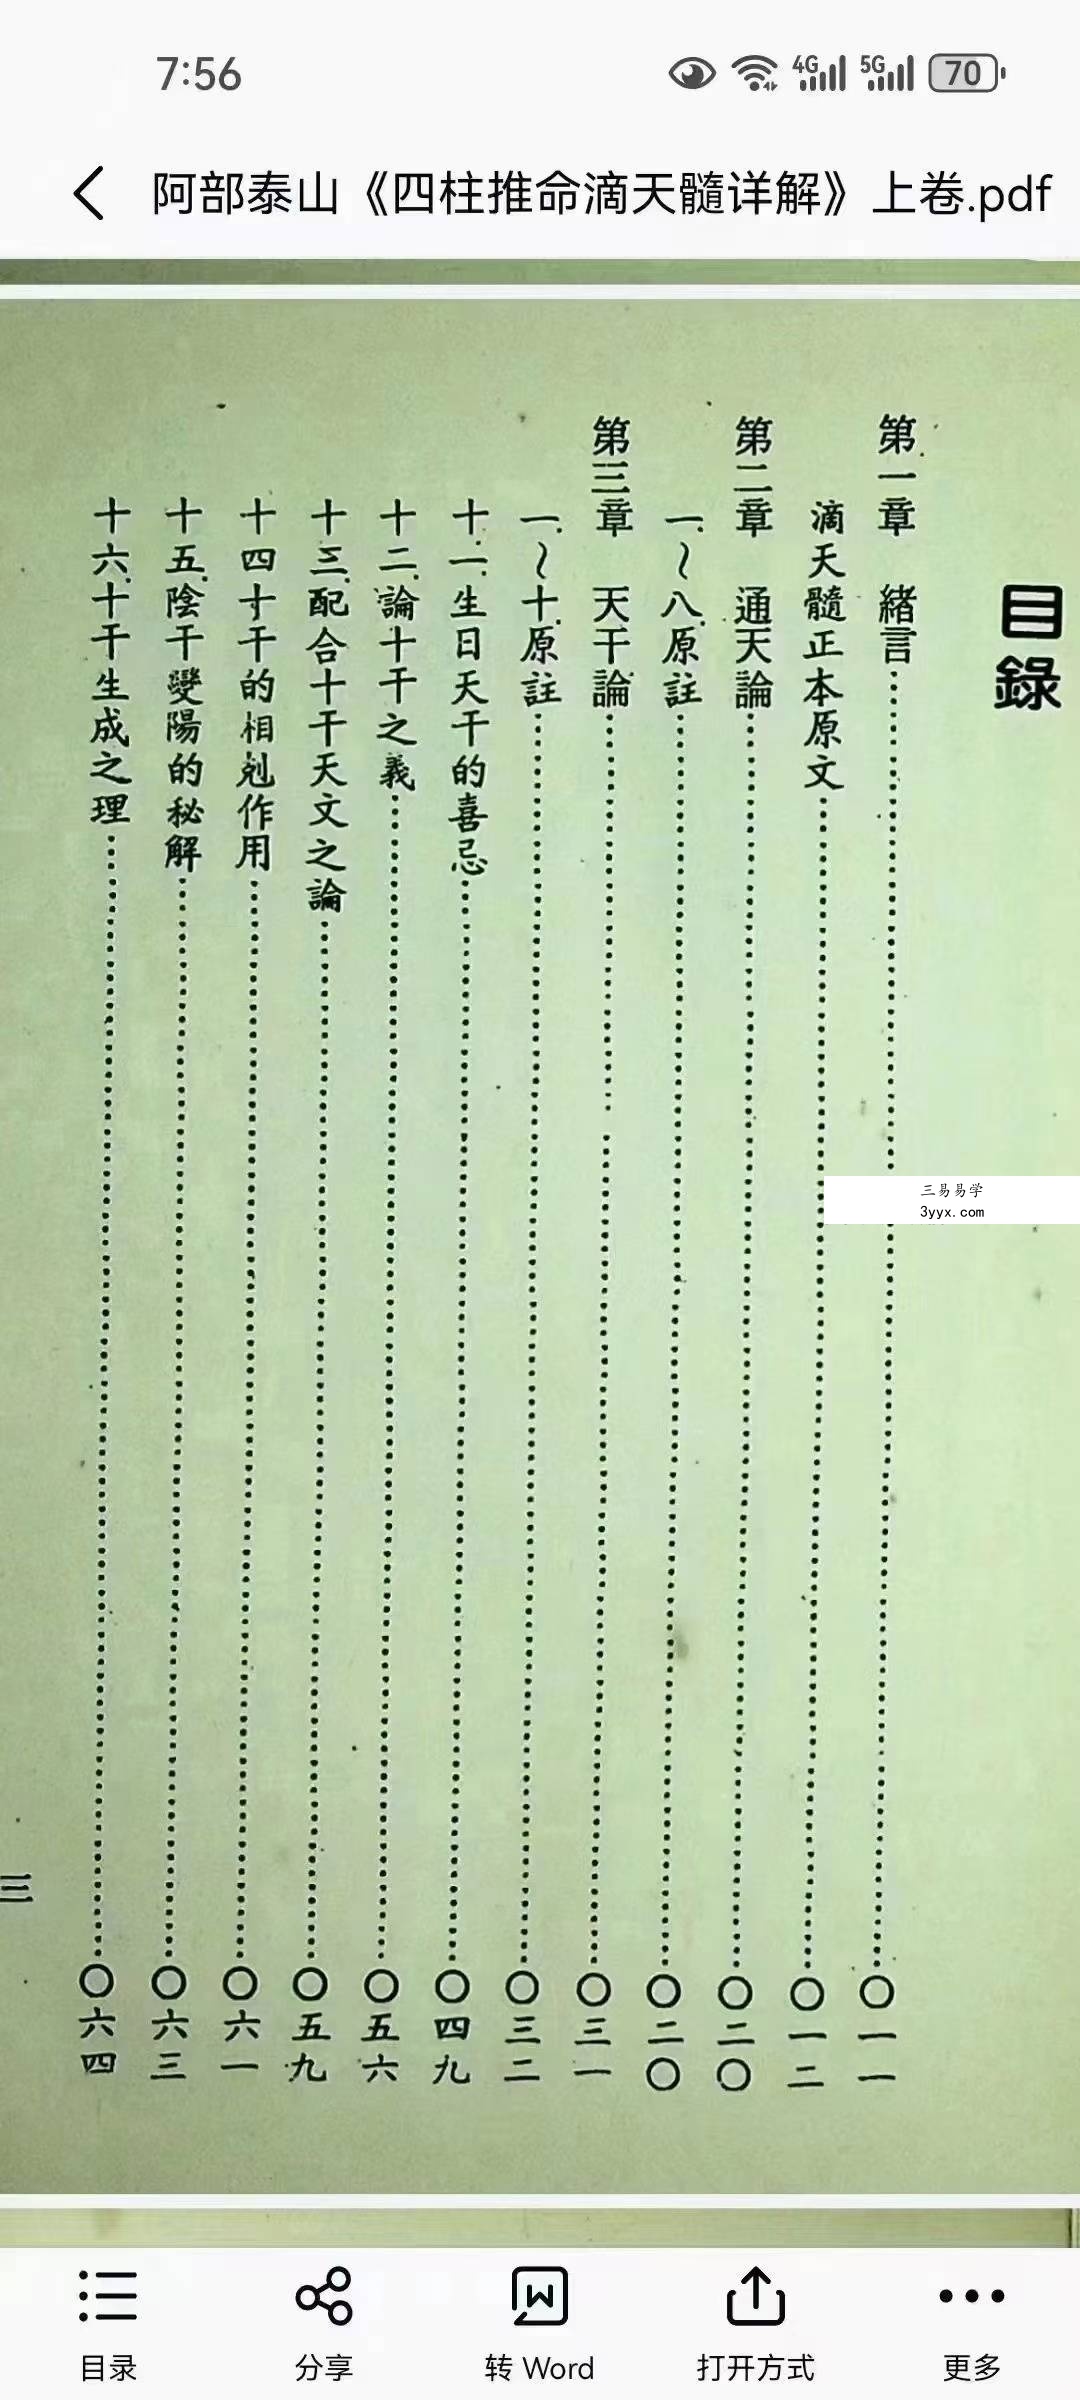 7:56
4G
5G
70
阿部泰山《四柱推命滴天髓详解》上卷.pdf
目錄
第一章 緒言……〇一一
滴天髓正本原文……〇一二
第二章 通天論……〇二〇
一.~八.原註……〇二〇
第三章 天干論……〇三一
一.~十.原註……〇三二
十一.生日天干的喜忌……〇四九
十二.論十干之義……〇五六
十三.配合十干天文之論……〇五九
十四十干的相剋作用……〇六一
十五.陰干變陽的秘解……〇六三
十六.十干生成之理……〇六四
三
三易易学
3yyx.com
目录
分享
转 Word
打开方式
更多